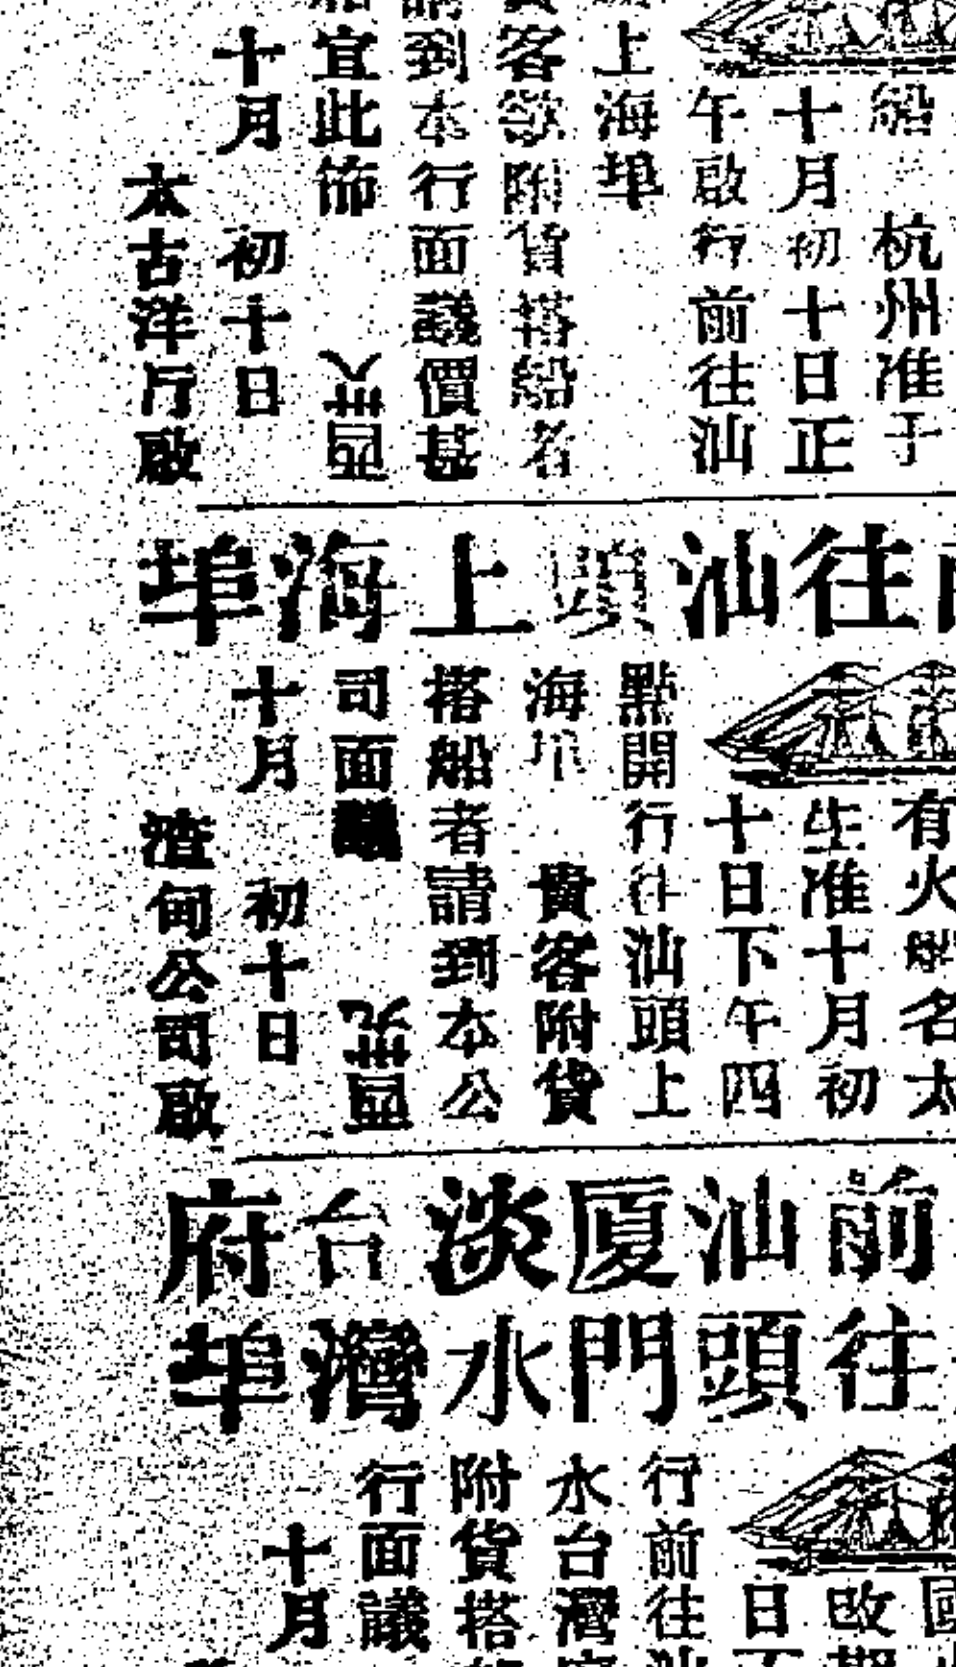 船　杭州准于
十月初十日正
午啟行前往汕
上海埠
客欲附貨搭船名
到本行面議價
宜此佈
十月　初十日
太古洋行啟
往汕頭上海埠
有火船名太
生准十月初
十日下午四
點開行往汕頭上
海埠　貴客附貨
搭船者請到本公
司面議
十月　初十日
渣甸公司啟
前往
汕頭
廈門
淡水
台灣
府埠
改期
日
行前往汕
水台灣
附貨搭
行面議
十月